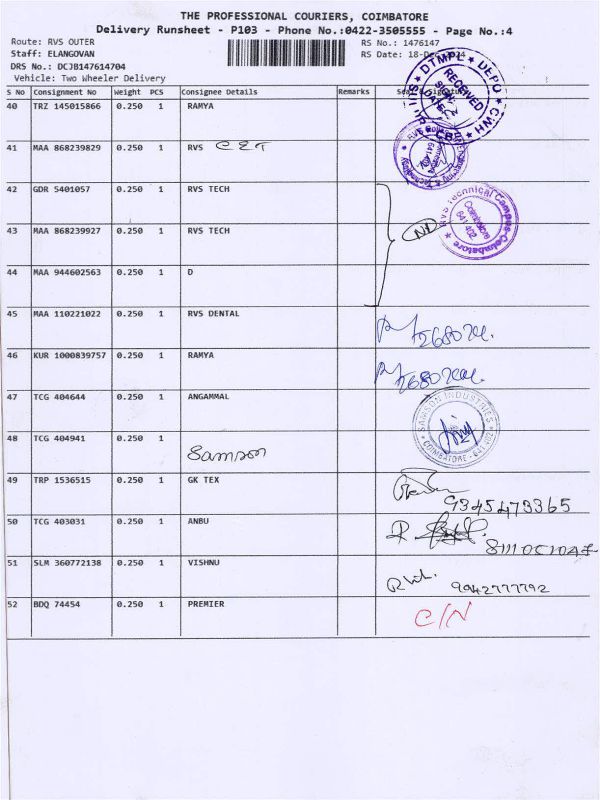 THE PROFESSIONAL COURIERS, COIMBATORE
Delivery Runsheet - P103 - Phone No.:0422-3505555 - Page No.:4
Route: RVS OUTER RS No.: 1476147
Staff: ELANGOVAN RS Date: 18-Dec-2024
DRS No.: DCJB147614704
Vehicle: Two Wheeler Delivery
S No Consignment No Weight PCS Consignee Details Remarks Seal & Signature
40 TRZ 145015866 0.250 1 RAMYA
DTMPL DEPO CWH RECEIVED SIGN DATE
41 MAA 868239829 0.250 1 RVS CET
42 GDR S401057 0.250 1 RVS TECH
RVS Technical Campus-Coimbatore Coimbatore 641 402
43 MAA 868239927 0.250 1 RVS TECH
44 MAA 944602563 0.250 1 D
45 MAA 110221022 0.250 1 RVS DENTAL
46 KUR 1000839757 0.250 1 RAMYA
47 TCG 404644 0.250 1 ANGAMMAL
SAMSON INDUSTRIES COIMBATORE - 641 402
48 TCG 404941 0.250 1 Samson
49 TRP 1536515 0.250 1 GK TEX
9345473365
50 TCG 403031 0.250 1 ANBU
51 SLM 360772138 0.250 1 VISHNU
9942777792
52 BDQ 74454 0.250 1 PREMIER C/N